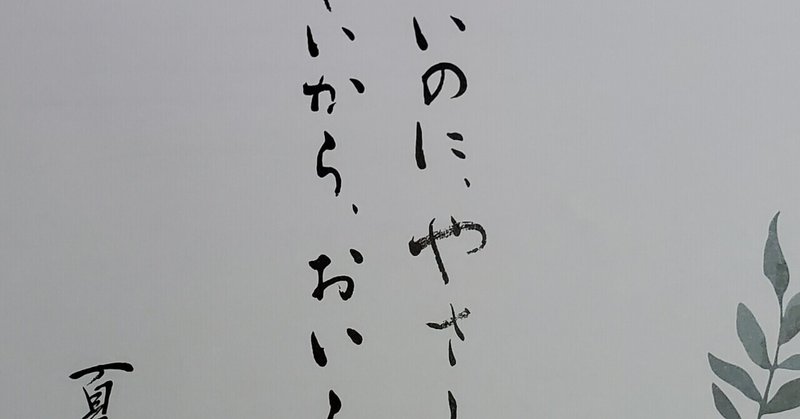 いのに、やさし
いから、おい
夏